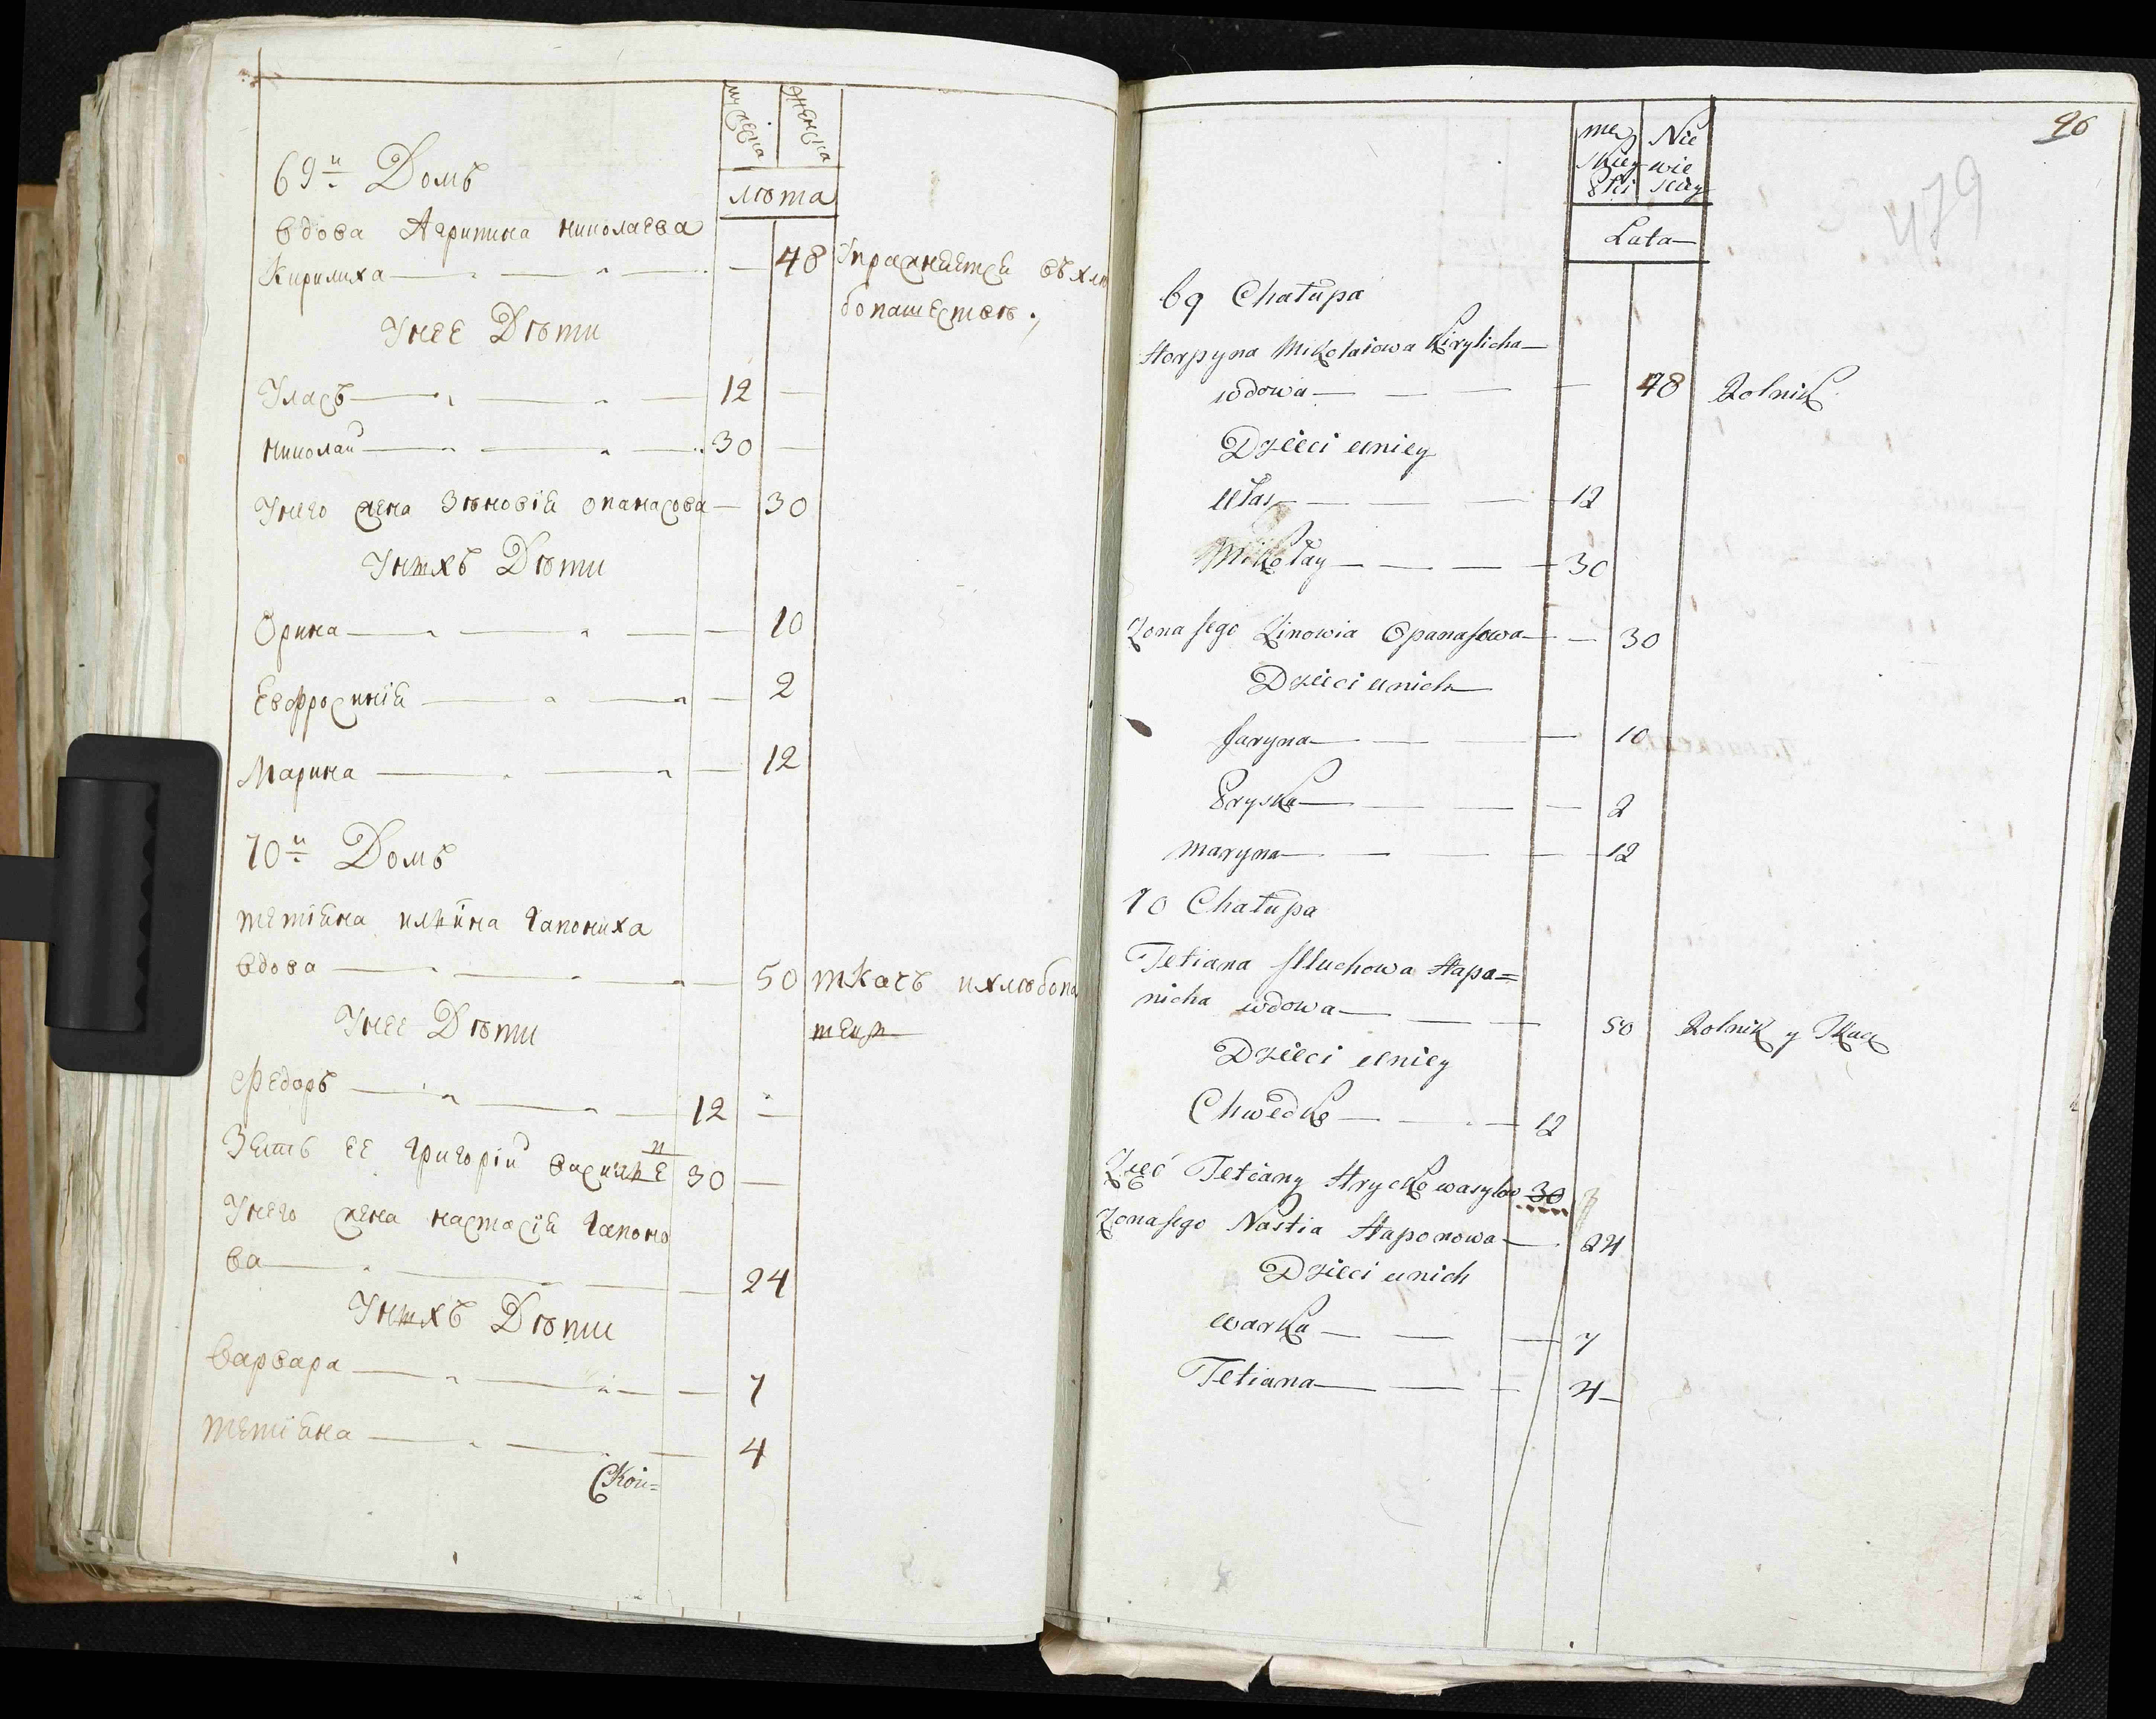 мужеска
женска
лѣта
69й Домъ
вдова Агрипина николаева
Кирилиха — — — — 48 Упражняется въ хлѣ
бопашествѣ.,
Унее Дѣти
Уласъ — — — 12 —
николай — — — 30 —
Унего жена Зѣновія опанасова — 30
Унихъ Дѣти
Орина — — — — 10
Евфросинія — — — 2
Марина — — — 12
70й Домъ
тетіяна ильина Гапониха
вдова — — — — 50 ткачъ и хлѣбопа
Унее Дѣти
федоръ — — — 12 —
Зять ее григорій василье 30 —
Унего жена настасія Гапоно
ва — — — — 24
Унихъ Дѣти
варвара — — — — 7
тетіяна — — — — 4
Скои=
96
479
męz Nie
skiey wie
Płci sciey
Lata
69 Chałupa
Horpyna Mikołaiowa Kirylicha —
wdowa — — — — 48 Rolnik
Dzieci uniey
Ułas — — — 12
Mikołay — — — 30
Zona jego Zinowia Opanasowa — — 30
Dzieci unich
Jaryna — — — 10
Pryska — — — 2
Maryna — — — 12
70 Chałupa
Tetiana Illuchowa Hapo=
nicha wdowa — — — 50 Rolnik y Tkacz
Dzieci uniey
Chwedko — — — 12
Zięć Tetiany Hrycko wasylow 30
Zona jego Nastia Haponowa — — 24
Dzieci unich
warka — — — 7
Tetiana — — — 4